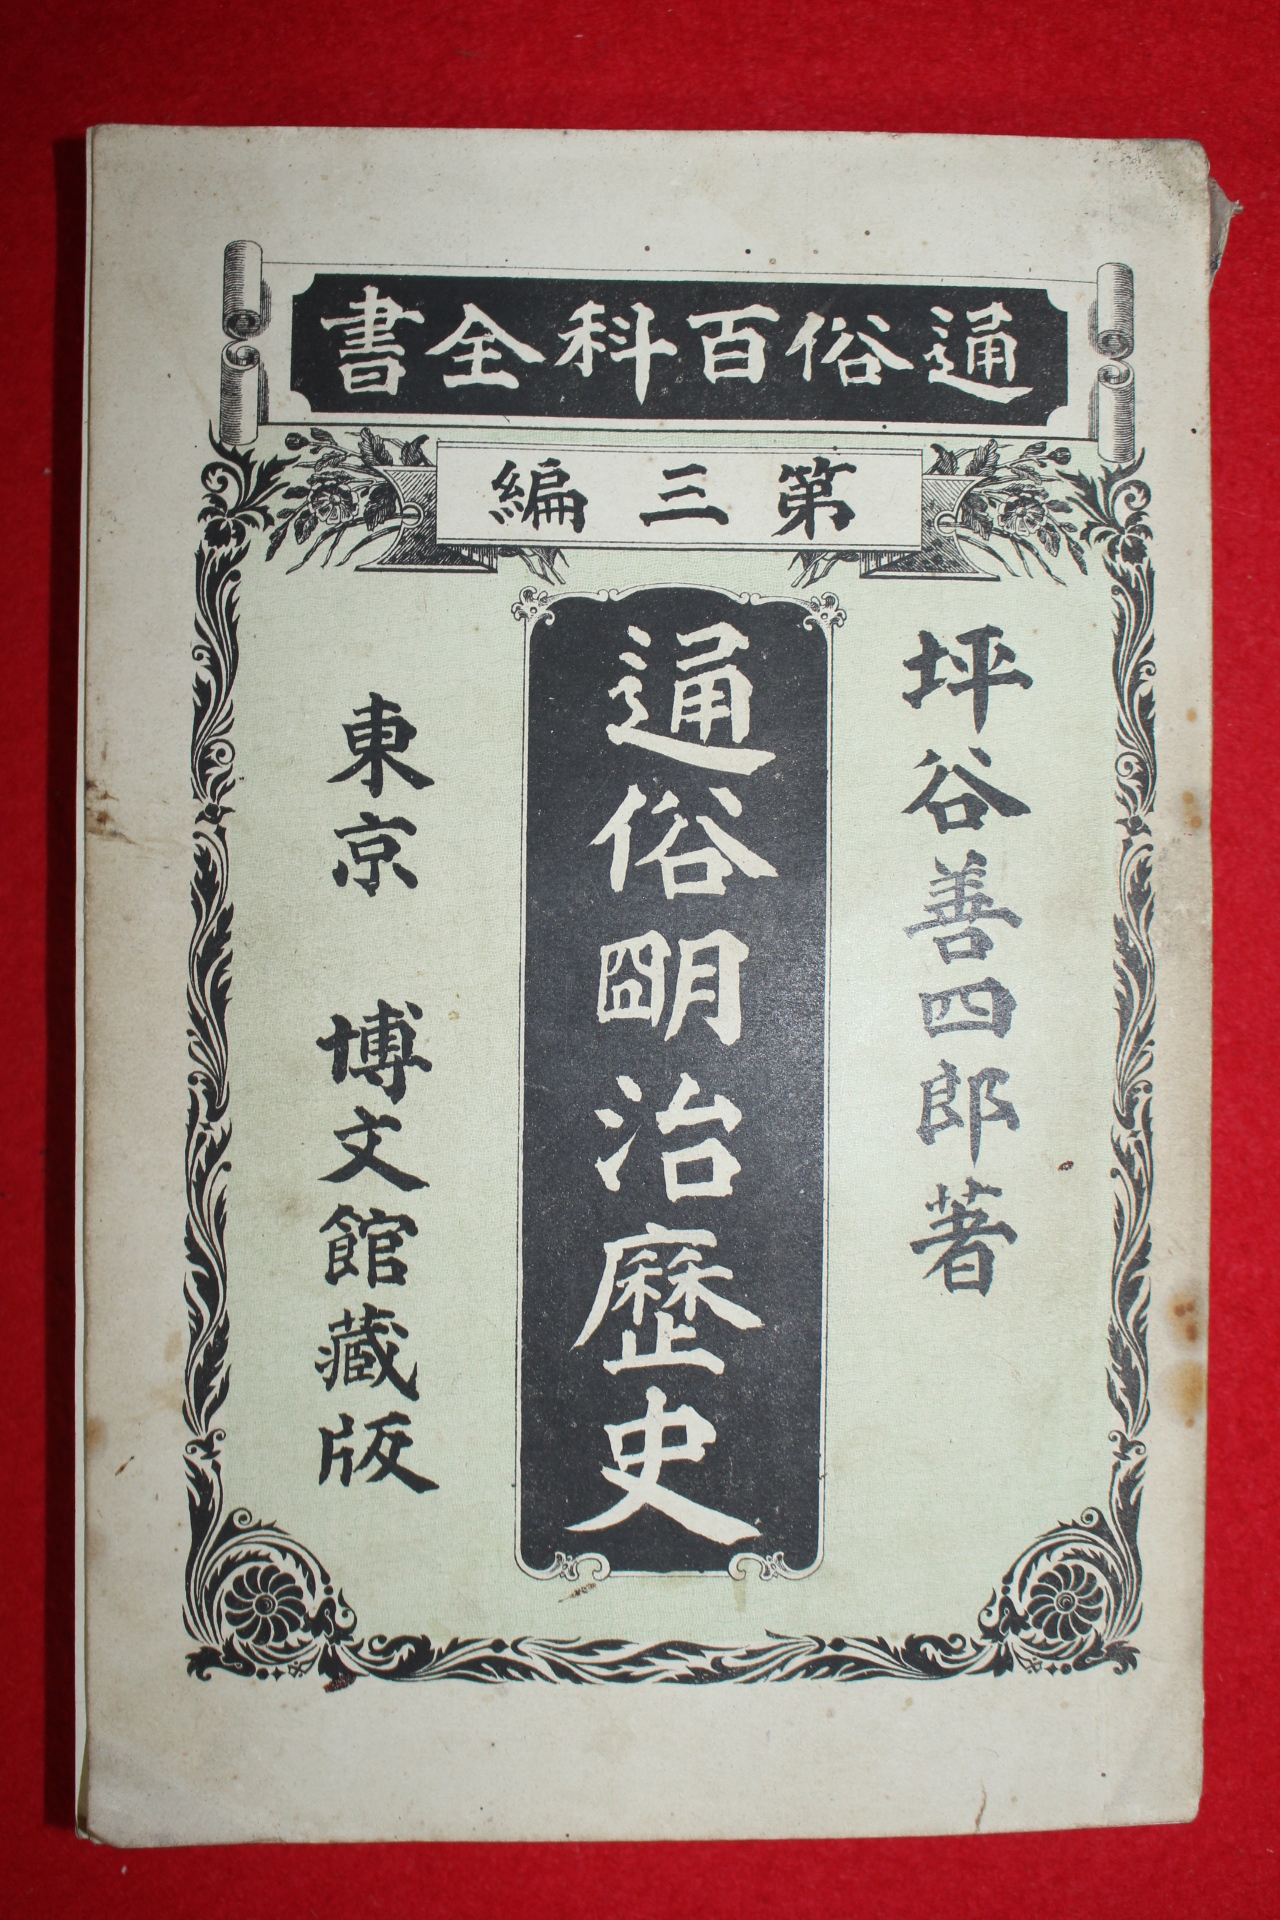 通俗百科全書
第三編
坪谷善四郎著
通俗朙治歷史
東京 博文館藏版